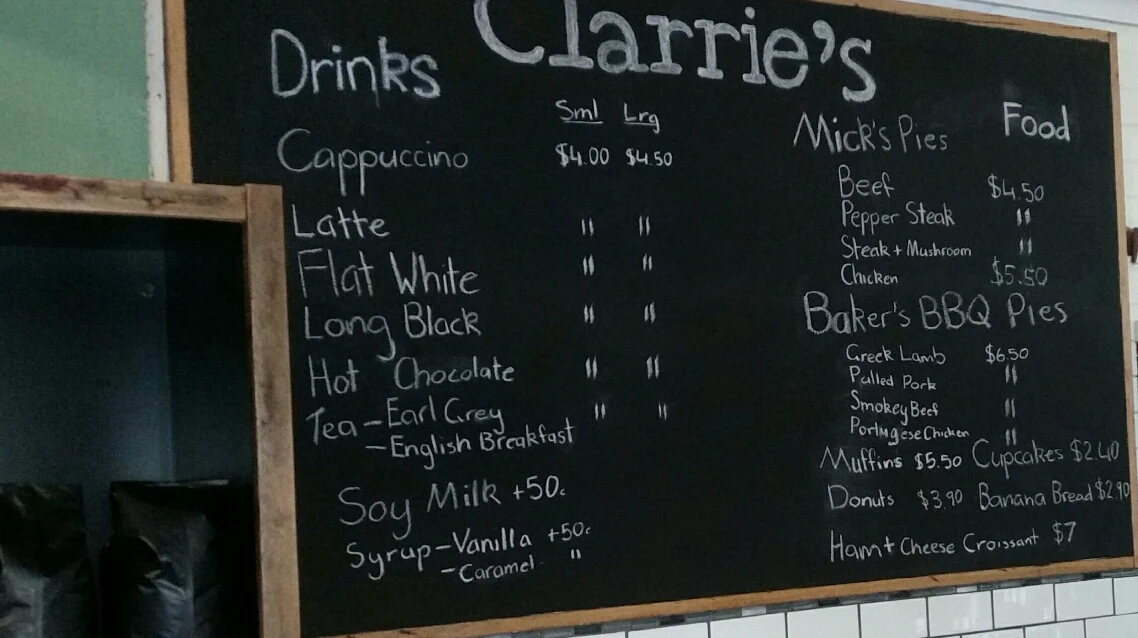 Clarrie's
Drinks
Sml Lrg
Cappuccino $4.00 $4.50
Latte " "
Flat White " "
Long Black " "
Hot Chocolate " "
Tea - Earl Grey " "
- English Breakfast
Soy Milk +50c
Syrup - Vanilla +50c
- Caramel "
Food
Mick's Pies
Beef $4.50
Pepper Steak "
Steak + Mushroom "
Chicken $5.50
Baker's BBQ Pies
Greek Lamb $6.50
Pulled Pork "
Smokey Beef "
Portugese Chicken "
Muffins $5.50 Cupcakes $2.40
Donuts $3.90 Banana Bread $2.90
Ham + Cheese Croissant $7